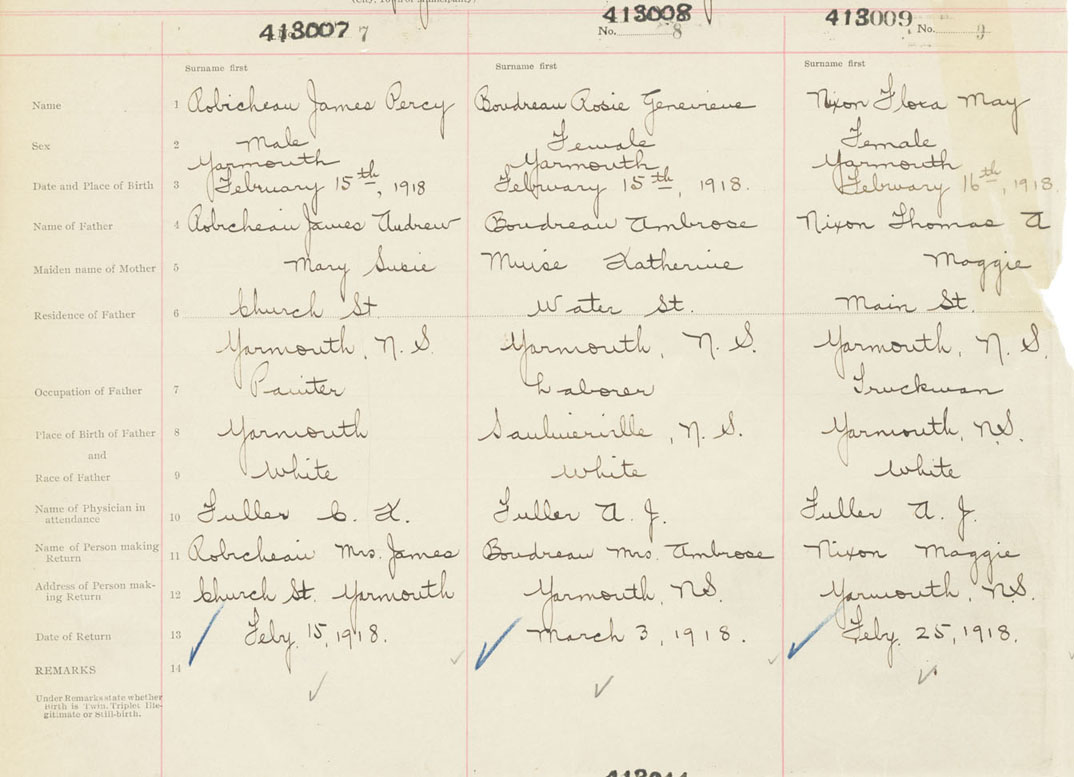 (City, Town or Municipality)
413007 7 413008 No. 8 413009 No. 9
Surname first Surname first Surname first
Name 1 Robicheau James Percy Boudreau Rosie Genevieve Nixon Flora May
Sex 2 Male Female Female
Yarmouth Yarmouth Yarmouth
Date and Place of Birth 3 February 15th, 1918 February 15th, 1918. February 16th, 1918.
Name of Father 4 Robicheau James Andrew Boudreau Ambrose Nixon Thomas A
Maiden name of Mother 5 Mary Susie Muise Katherine Maggie
Residence of Father 6 Church St Water St. Main St.
Yarmouth, N. S. Yarmouth, N. S. Yarmouth, N. S.
Occupation of Father 7 Painter Laborer Truckman
Place of Birth of Father 8 Yarmouth Saulnierville, N. S. Yarmouth, N.S.
and
Race of Father 9 White White White
Name of Physician in
attendance 10 Fuller L. K. Fuller A. J. Fuller A. J.
Name of Person making
Return 11 Robicheau Mrs. James Boudreau Mrs. Ambrose Nixon Maggie
Address of Person mak-
ing Return 12 Church St. Yarmouth Yarmouth, N.S. Yarmouth, N.S.
Date of Return 13 Feby. 15, 1918. March 3, 1918. Feby. 25, 1918.
REMARKS 14
Under Remarks state whether
Birth is Twin, Triplet, Ille-
gitimate or Still-birth.